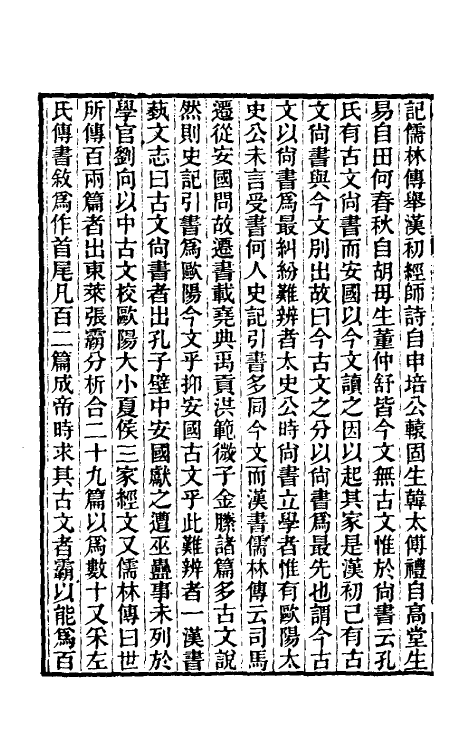 記儒林傳舉漢初經師詩自申培公轅固生韓太傅禮自高堂生
易自田何春秋自胡毋生董仲舒皆今文無古文惟於尚書云孔
氏有古文尚書而安國以今文讀之因以起其家是漢初已有古
文尚書與今文別出故曰今古文之分以尚書爲最先也謂今古
文以尚書爲最糾紛難辨者太史公時尚書立學者惟有歐陽太
史公未言受書何人史記引書多同今文而漢書儒林傳云司馬
遷從安國問故遷書載堯典禹貢洪範微子金縢諸篇多古文說
然則史記引書爲歐陽今文乎抑安國古文乎此難辨者一漢書
藝文志曰古文尚書者出孔子壁中安國獻之遭巫蠱事未列於
學官劉向以中古文校歐陽大小夏侯三家經文又儒林傳曰世
所傳百兩篇者出東萊張霸分析合二十九篇以爲數十又采左
氏傳書敘爲作首尾凡百二篇成帝時求其古文者霸以能爲百